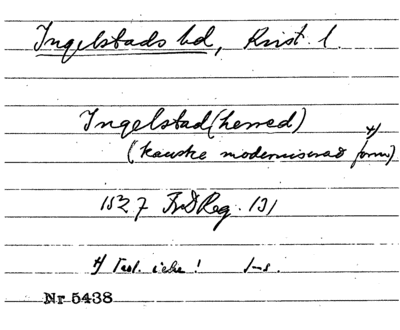 Ingelstads hd, Krist. l.
Ingelstad (herred)
(kanske moderniserad form) x)
1527 FrdReg. 131
x) Text. icke!
Nr 5438